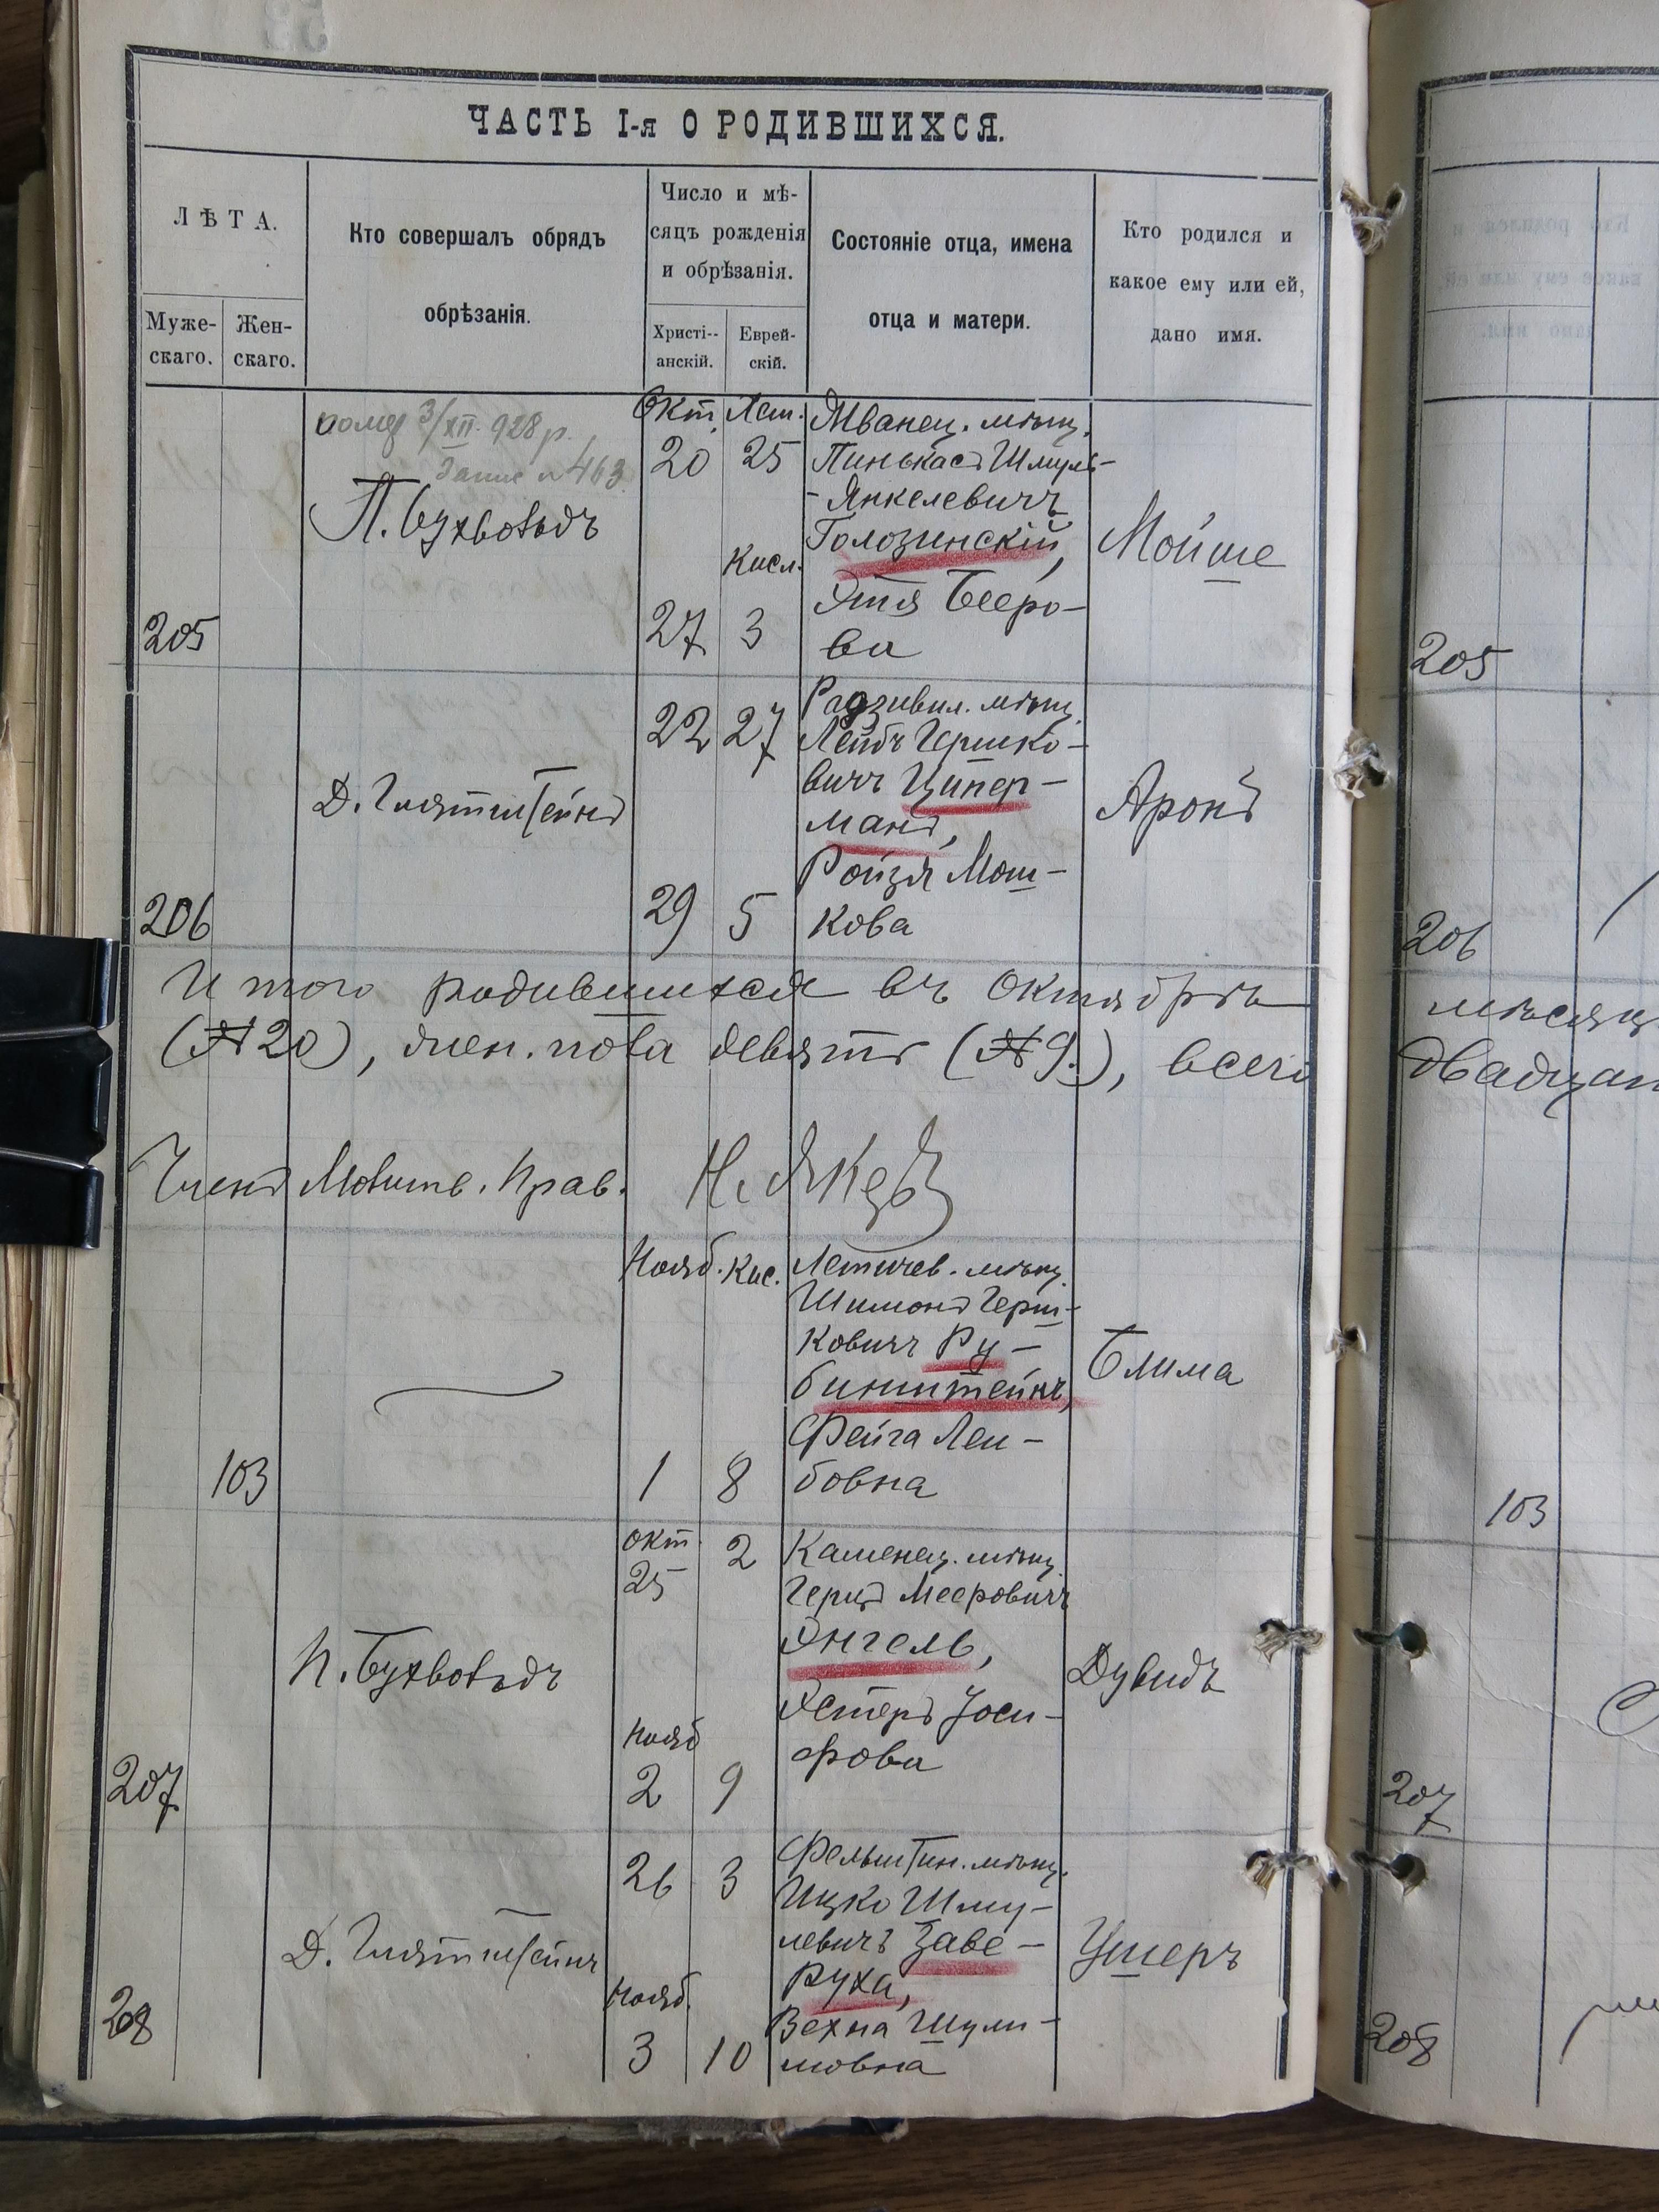 ЧАСТЬ I-я О РОДИВШИХСЯ.
ЛѢТА.
Муже-
скаго.
Жен-
скаго.
Кто совершалъ обрядъ
обрѣзанія.
Число и мѣ-
сяцъ рожденія
и обрѣзанія.
Христі-
анскій.
Еврей-
скій.
Состояніе отца, имена
отца и матери.
Кто родился и
какое ему или ей,
дано имя.
3/XII 928 р.
№ 463
205
П. Бухвольдъ
Окт.
20 25
Кисл.
27 3
Жванец. мѣщ.
Пинькасъ Шмуль-
-Янкелевичъ
Голозинскій,
Этя Бееро-
ва
Мойше
206
Д. Глятштейнъ
22 27
29 5
Радзивил. мѣщ.
Лейбъ Гершко-
вичъ Ципер-
манъ,
Ройзя Мош-
кова
Аронъ
Итого родившихся въ Октябрѣ
(№ 20), жен. пола девять (№ 9.), всего
Членъ Молитв. Прав.
103
Нояб. Кис.
1 8
Летичев. мѣщ.
Шимонъ Герш-
ковичъ Ру-
бинштейнъ,
Фейга Леи-
бовна
Блима
207
П. Бухвольдъ
Окт. 2
25
Нояб
2 9
Каменец. мѣщ.
Герцъ Мееровичъ
Энгель,
Эстеръ Іоси-
фова
Дувидъ
208
Д. Глятштейнъ
26 3
Нояб.
3 10
Фельштин. мѣщ.
Ицко Шму-
левичъ Заве-
руха,
Вехна Шули-
мовна
Ушеръ
205
206
мѣсяц
двадцат
103
207
208